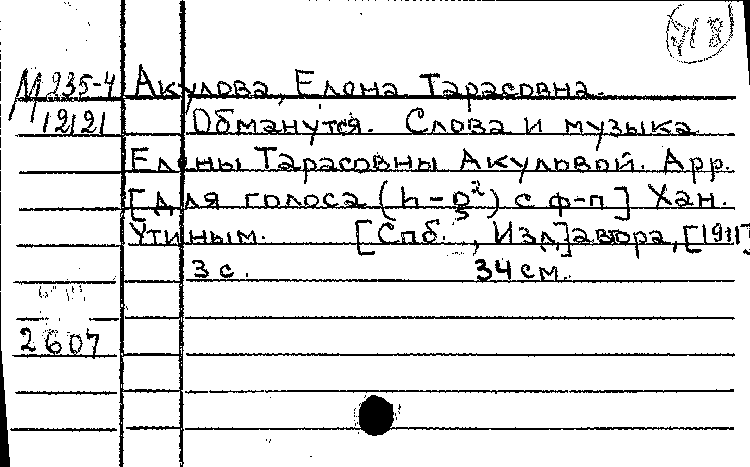 718
М 235-4 Акулова, Елена Тарасовна.
12121 Обманутся. Слова и музыка
Елены Тарасовны Акуловой. Арр.
[Для голоса (h-) с ф-п] Хан.
Утиным. [Спб., Изд] автора, [1911]
3 с. 34 см.
2607